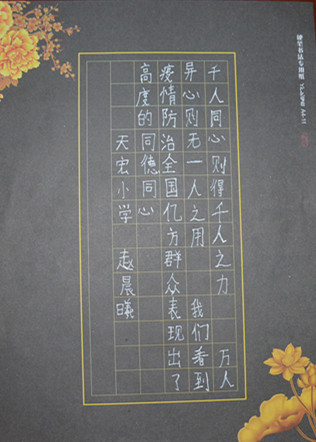 硬笔书法专用纸
千人同心则得千人之力 万人
异心则无一人之用 我们看到
疫情防治全国亿方群众表现出了
高度的同德同心
天宏小学 赵晨曦